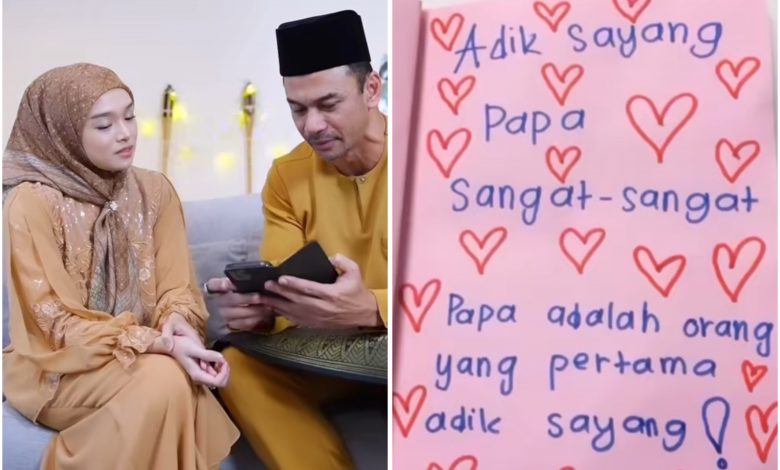 Adik sayang
Papa
Sangat-sangat
Papa adalah orang
yang pertama
adik sayang!